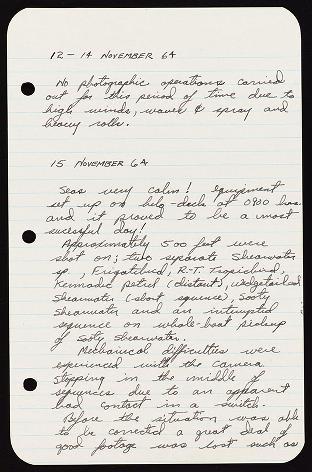 12 - 14 NOVEMBER 64
No photographic operations carried
out for this period of time due to
high winds, waves & spray and
heavy rolls.
15 NOVEMBER 64
Seas very calm! Equipment
set up on helo-deck at 0900 hrs.
and it proved to be a most
sucessful day!
Approximately 500 feet were
shot on; two separate Shearwater
sp., Frigatebird, R-T. Tropicbird,
Kermadec Petrel (distant), Wedgetailed
Shearwater (short squence), Sooty
Shearwater and an interrupted
squence on whale-boat pickup
of Sooty Shearwater.
Mechanical difficulties were
experienced with the camera
stopping in the middle of
sequences due to an apparent
bad contact in a switch.
Before this situation was able
to be corrected a great deal of
good footage was lost such as